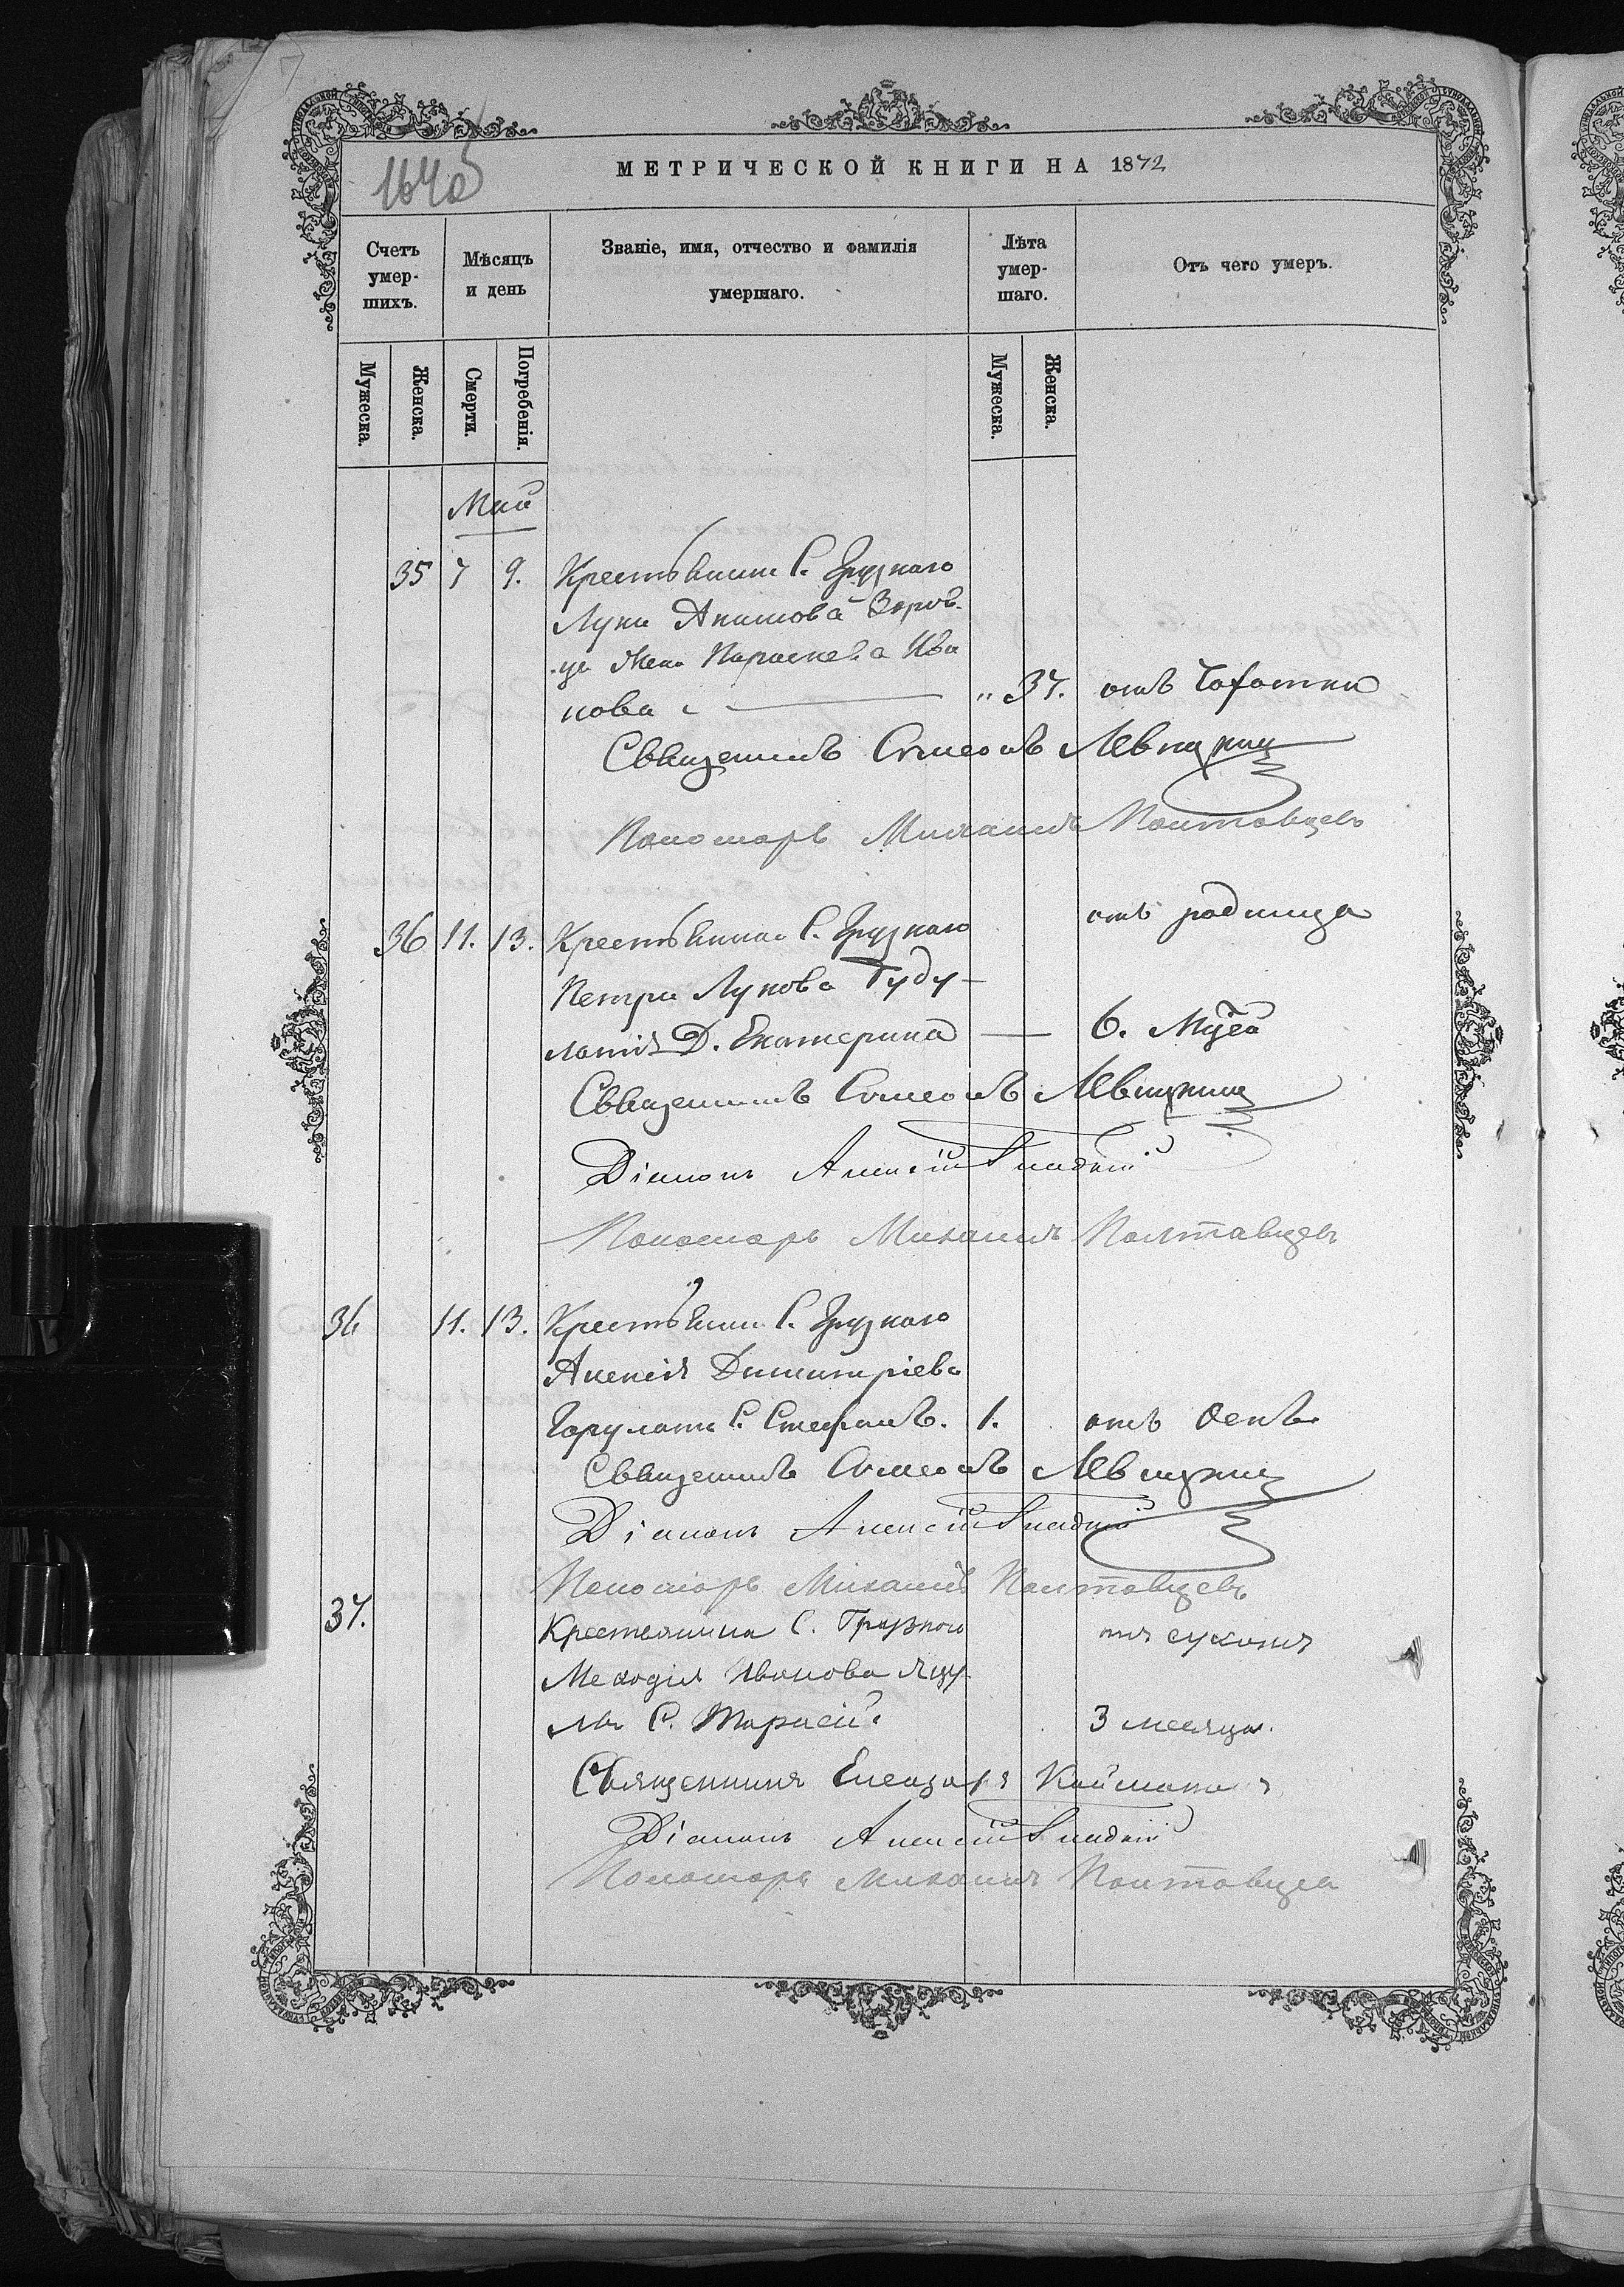 МЕТРИЧЕСКОЙ КНИГИ НА 1872
Счетъ умер-шихъ.
Мѣсяцъ и день
Званіе, имя, отчество и фамилія умершаго.
Лѣта умер-шаго.
Отъ чего умеръ.
Мужеска.
Женска.
Смерти.
Погребенія.
Мужеска.
Женска.
Май
35 7 9. Крестьянина С. Грузкаго
Луки Акимова
жена Параскева Ива
нова 37. отъ Чахотки
Священникъ Симеонъ Левицкий
Пономарь Михаилъ Полтавцевъ
36 11. 13. Крестьянина С. Грузкаго отъ родимца
Петра Лукова Гуду-
латія Д. Екатерина 6. Муса
Священникъ Симеонъ Левицкий
Діаконъ Алексій
Пономарь Михаилъ Полтавцевъ
36 11. 13. Крестьянина С. Грузкаго
Алексія Димитріева
С. Стефанъ. 1. отъ Оспы
Священникъ Симеонъ Левицкий
Діаконъ Алексій
Пономарь Михаилъ Полтавцевъ
37. Крестьянина С. Грузкого
Меѳодія Иванова
С. Тарасій. 3 месяца.
Священникъ Елеазаръ
Діаконъ Алексій
Пономарь Михаилъ Полтавцев